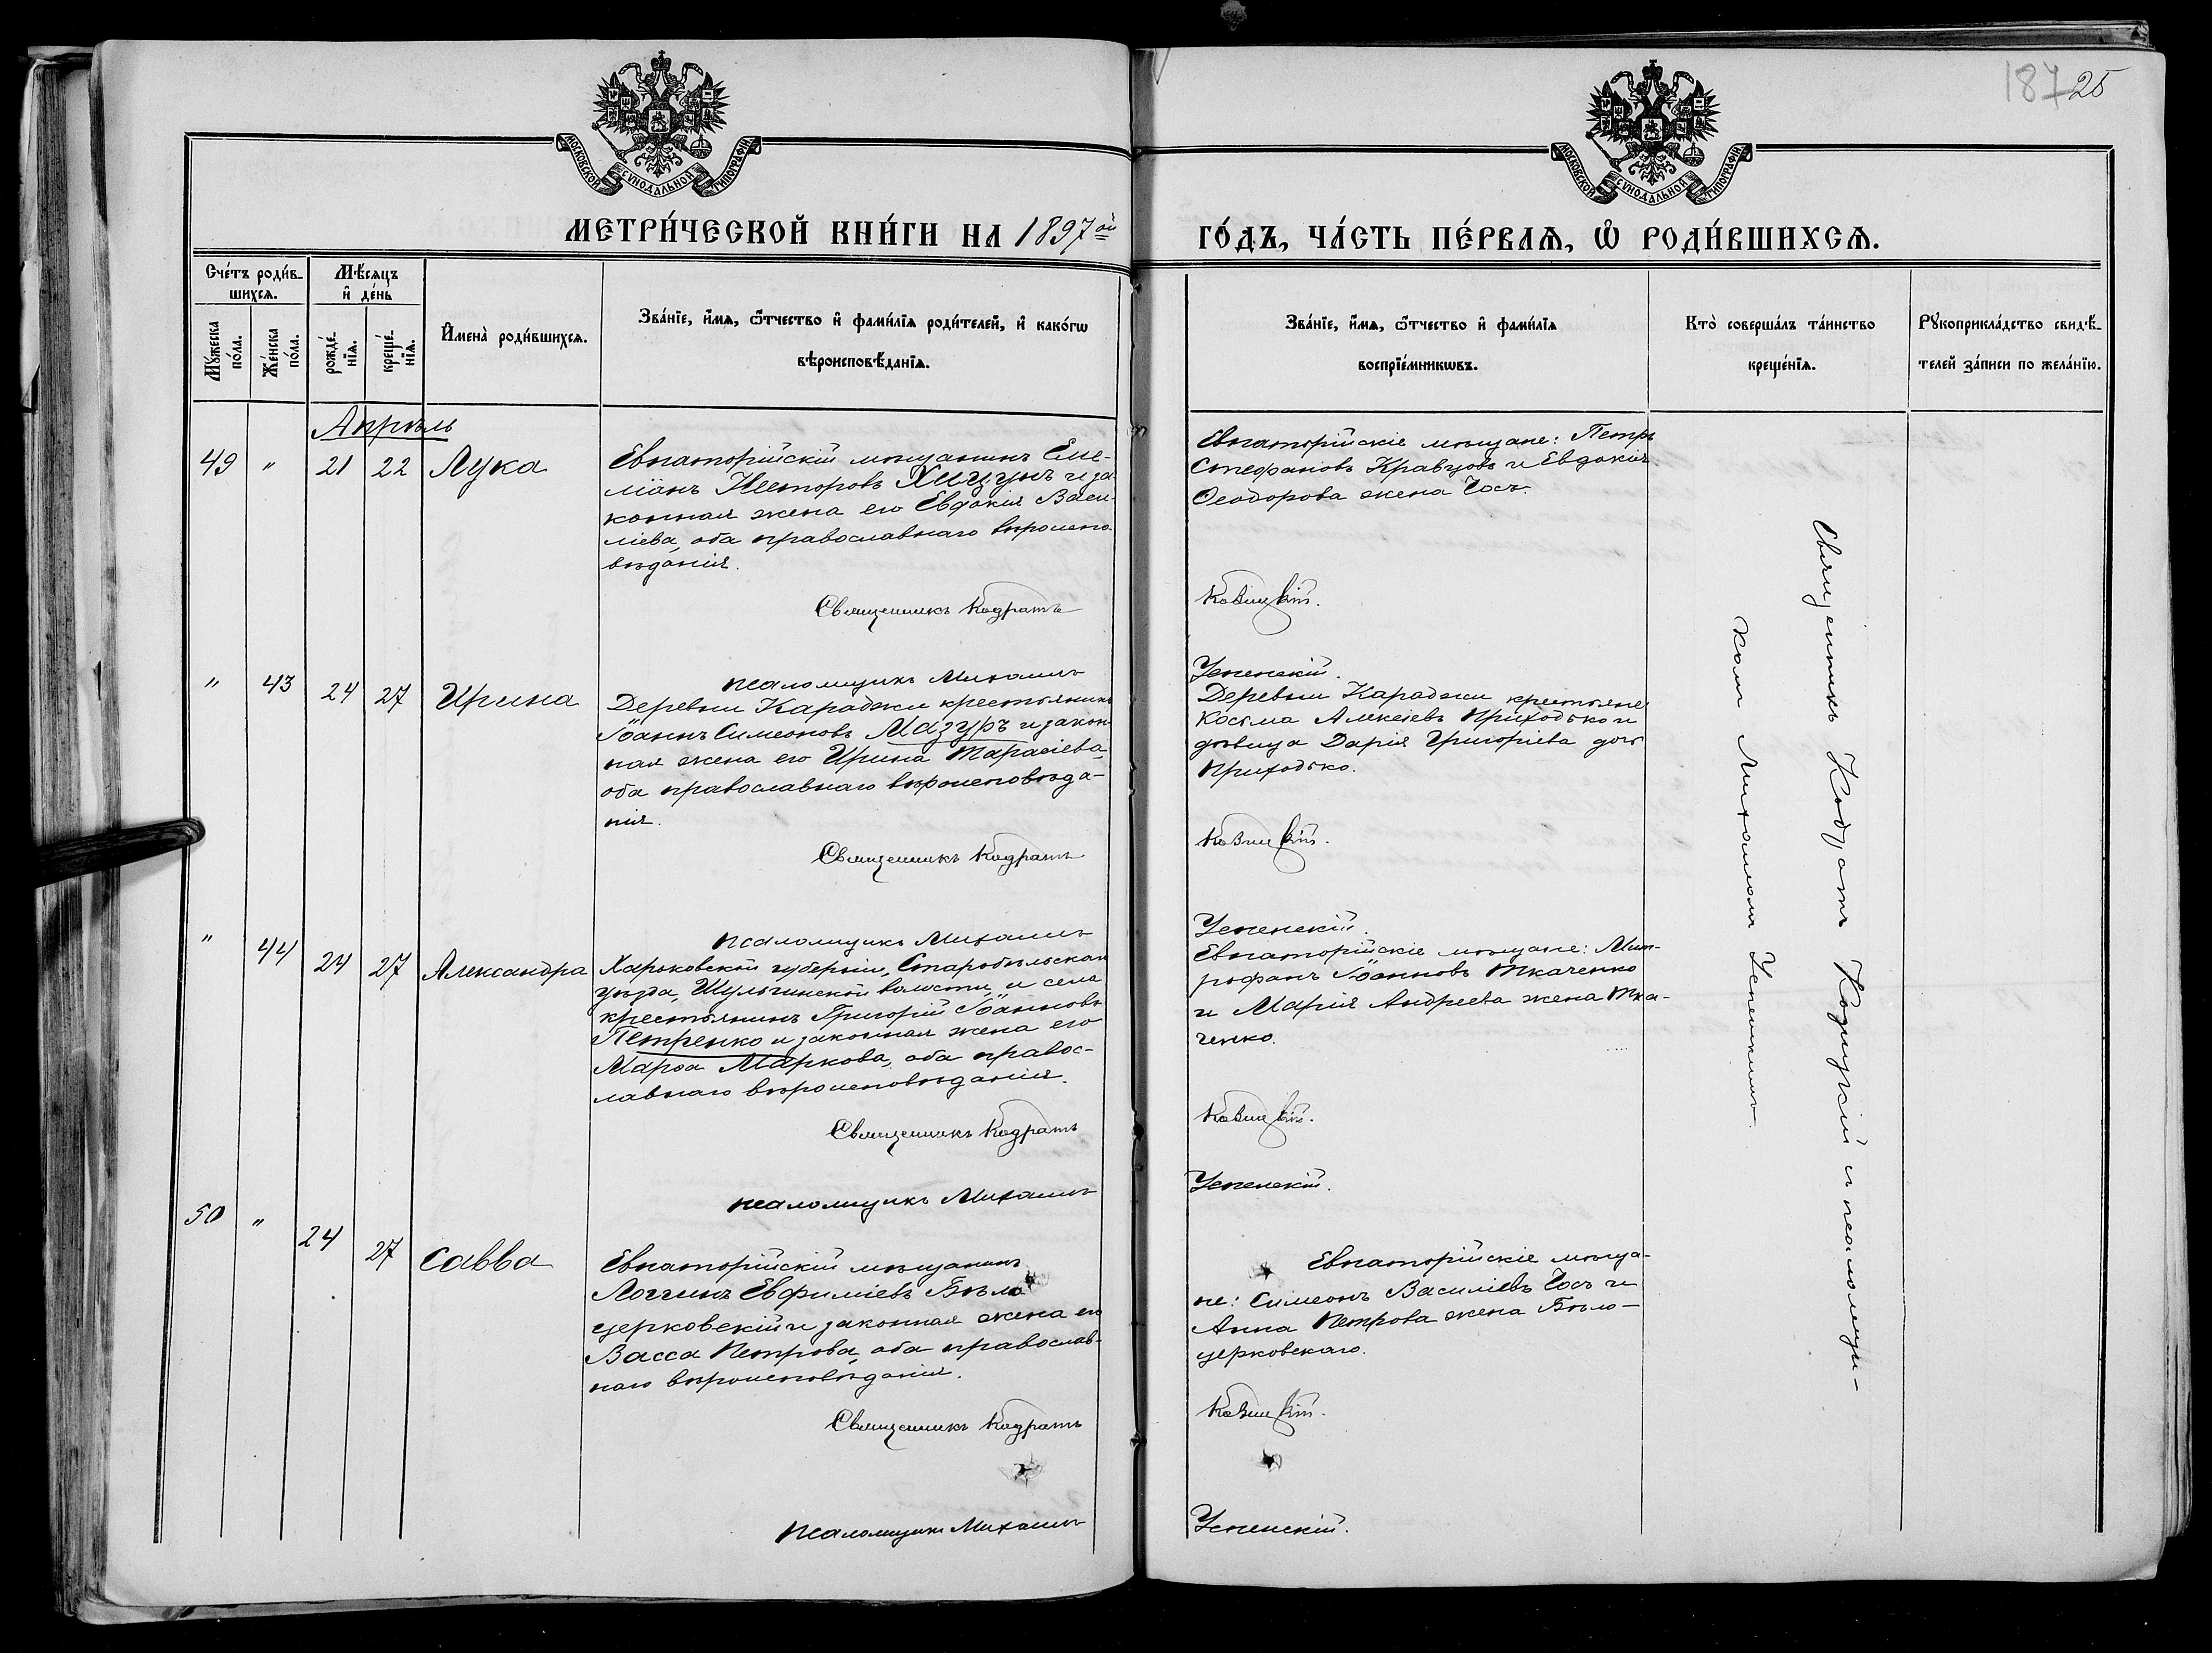 187 25
МОСКОВСКОЙ СѴНОДАЛЬНОЙ ТИПОГРАФІИ
МОСКОВСКОЙ СѴНОДАЛЬНОЙ ТИПОГРАФІИ
МЕТРИ́ЧЕСКОЙ КНИ́ГИ НА 1897 ой
ГО́ДЪ, ЧА́СТЬ ПЕ́РВАѦ, Ѡ҆ РОДИ́ВШИХСѦ.
Счéтъ роди́в-
шихсѧ.
Мꙋ́жеска
по́ла.
Же́нска
по́ла.
Мѣ́сѧцъ
и҆ де́нь
рожде́-
нїѧ.
креще́-
нїѧ.
И҆мена̀ роди́вшихсѧ.
Зва́нїе, и҆́мѧ, ѻ҆́тчество и҆ фами́лїѧ роди́телей, и҆ како́гѡ
вѣроисповѣ́данїѧ.
Зва́нїе, и҆́мѧ, ѻ҆́тчество и҆ фами́лїѧ
воспрїе́мникѡвъ.
Кто̀ соверша́лъ та́инство
креще́нїѧ.
Рꙋкоприкла́дство свидѣ́-
телей за́писи по жела́нїю.
Апрѣль
49 " 21 22 Лука
Евпаторійскій мѣщанинъ Еме-
ліанъ Несторовъ Хицунъ и за-
конная жена его Евдокія Васи-
ліева, оба православнаго вѣроиспо-
вѣданія.
Священникъ Кодратъ
псаломщикъ Михаилъ
Евпаторійскіе мѣщане: Петръ
Стефановъ Кравцовъ и Евдокія
Ѳеодорова жена Чосъ.
Козицкій.
Успенскій.
" 43 24 27 Ирина
Деревни Караджи крестьянинъ
Іоаннъ Симеоновъ Мазуръ и закон-
ная жена его Ирина Тарасіева,
оба православнаго вѣроисповѣда-
нія.
Священникъ Кодратъ
псаломщикъ Михаилъ
Деревни Караджи крестьяне
Косьма Алексіевъ Приходько и
дѣвица Дарія Григоріева дочь
Приходько.
Козицкій.
Успенскій.
" 44 24 27 Александра
Харьковской губерніи, Старобѣльскаго
уѣзда, Шульгинской волости и села
крестьянинъ Григорій Іоанновъ
Петренко и законная жена его
Марѳа Маркова, оба правос-
лавнаго вѣроисповѣданія.
Священникъ Кодратъ
псаломщикъ Михаилъ
Евпаторійскіе мѣщане: Мит-
рофанъ Іоанновъ Ткаченко
и Марія Андреева жена Тка-
ченко.
Козицкій.
Успенскій.
50 " 24 27 Савва
Евпаторійскій мѣщанинъ
Логгинъ Евфиміевъ Бѣло
церковскій и законная жена его
Васса Петрова, оба православ-
наго вѣроисповѣданія.
Священникъ Кодратъ
псаломщикъ Михаилъ
Евпаторійскіе мѣща-
не: Симеонъ Василіевъ Чосъ и
Анна Петрова жена Бѣло-
церковскаго.
Козицкій.
Успенскій.
Священникъ Кодратъ Козицкій съ псаломщи-
комъ Михаиломъ Успенскимъ